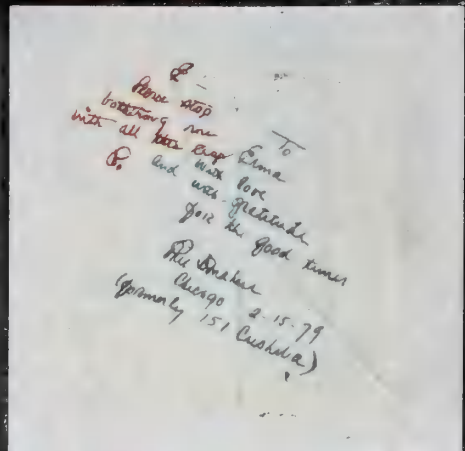 E -
Please stop
bothering me
with all this crap
P.
To
Erma
and with love
and with gratitude
for the good times
Phil Donahue
Chicago 2-15-79
(formerly 151 Cushwa)